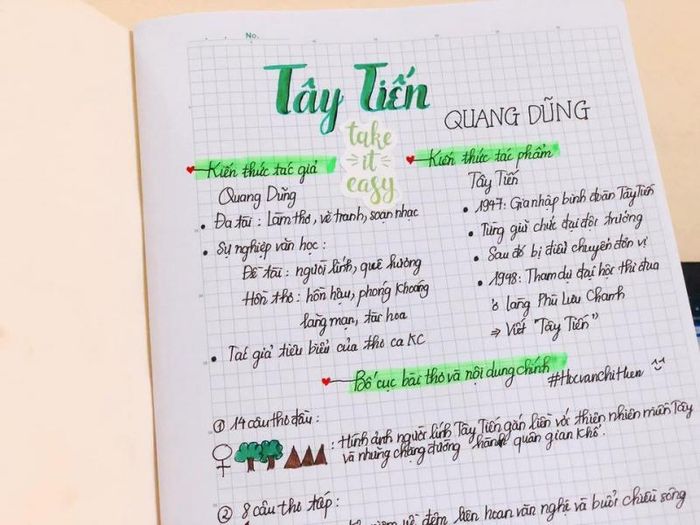 No.
Tây Tiến
QUANG DŨNG
take
it
easy
Kiến thức tác giả
Quang Dũng
• Đa tài : Làm thơ, vẽ tranh, soạn nhạc
• Sự nghiệp văn học :
Đề tài : người lính, quê hương
Hồn thơ : hồn hậu, phóng khoáng
lãng mạn, tài hoa
• Tác giả tiêu biểu của thơ ca KC
Kiến thức tác phẩm
Tây Tiến
• 1947: Gia nhập binh đoàn Tây Tiến
• Từng giữ chức đại đội trưởng
• Sau đó bị điều chuyển đơn vị
• 1948: Tham dự đại hội thi đua
ở làng Phù Lưu Chanh
⇒ Viết "Tây Tiến"
Bố cục bài thơ và nội dung chính
#Hocvanchihien
① 14 câu thơ đầu :
: Hình ảnh người lính Tây Tiến gắn liền với thiên nhiên miền Tây
và những chặng đường hành quân gian khổ.
② 8 câu thơ tiếp :
niệm về đêm liên hoan văn nghệ và buổi chiều sông